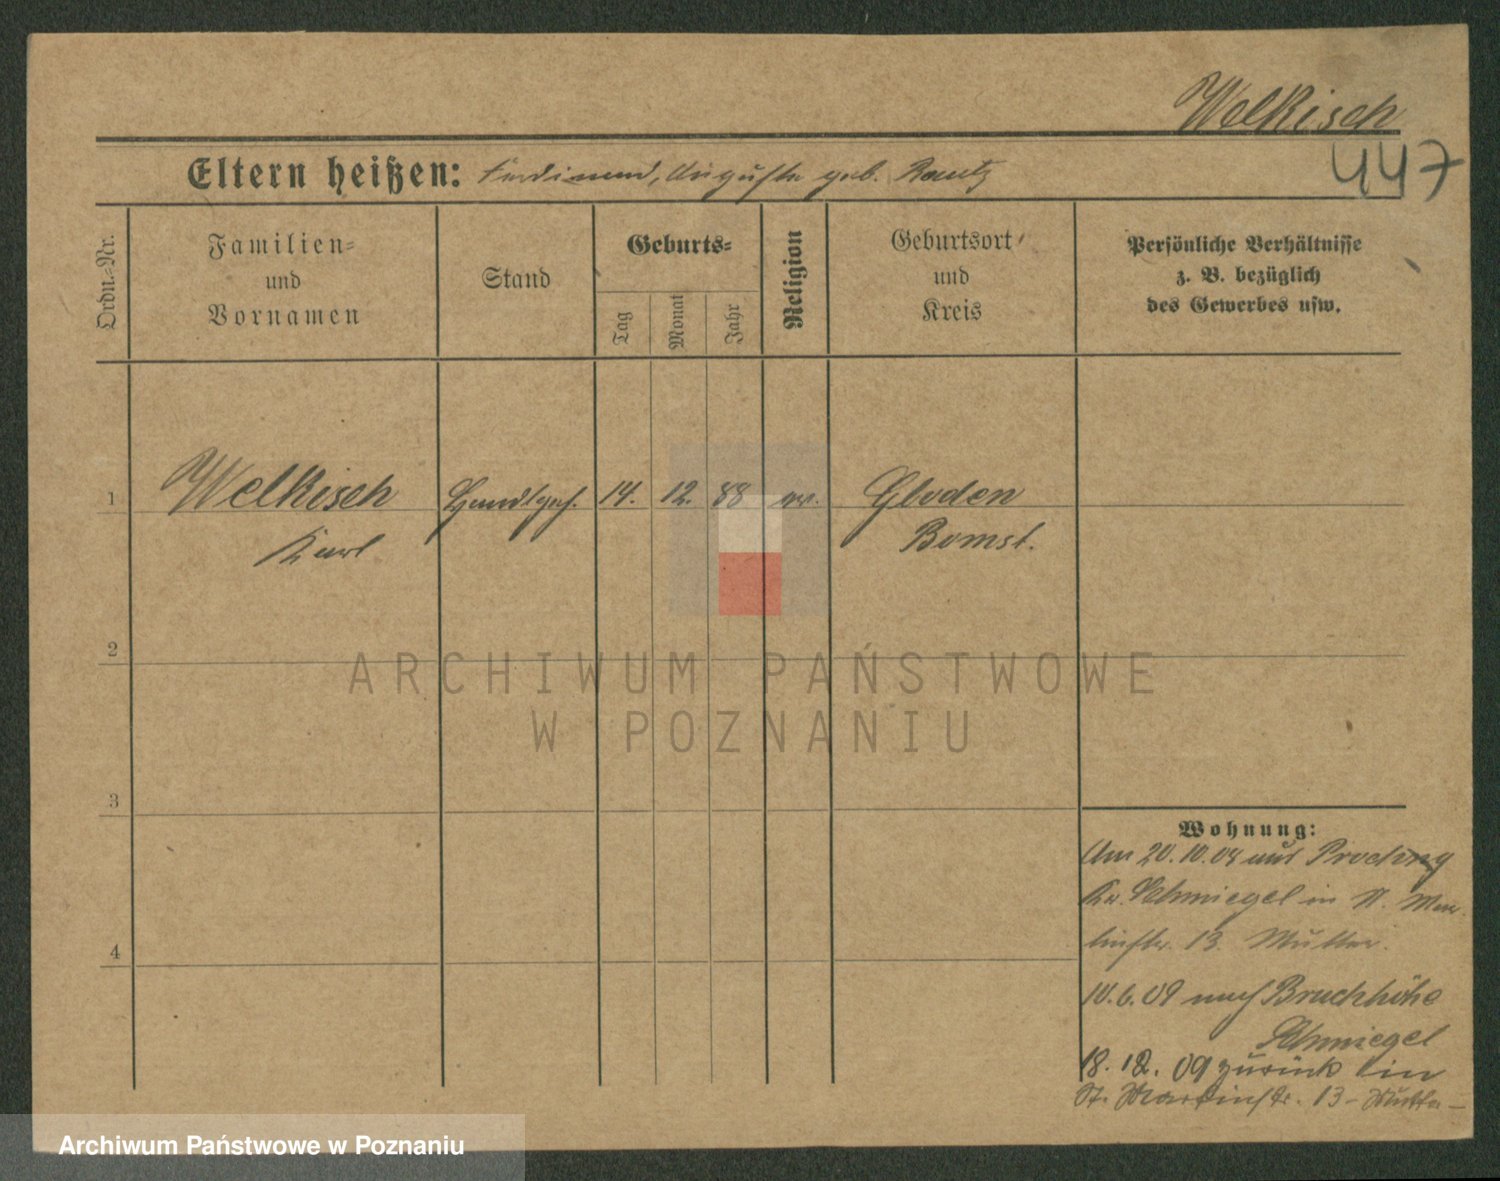 Welkisch
447
Eltern heißen: Ferdinand, Auguste geb. Rautz
Ordn.-Nr.
Familien-
und
Vornamen
Stand
Geburts-
Tag
Monat
Jahr
Religion
Geburtsort
und
Kreis
Persönliche Verhältnisse
z. B. bezüglich
des Gewerbes usw.
1
Welkisch
Karl
14. 12. 88 ev.
Gloden
Bomst.
2
ARCHIWUM PAŃSTWOWE
W POZNANIU
3
4
Wohnung:
Am 20.10.08 aus
Kr. Schmiegel in St. Mar-
tinstr. 13. Mutter.
10.6.09 nach Bruchhöhe
Schmiegel
18. 12. 09 zurück in
St. Martinstr. 13 - Mutter -
Archiwum Państwowe w Poznaniu